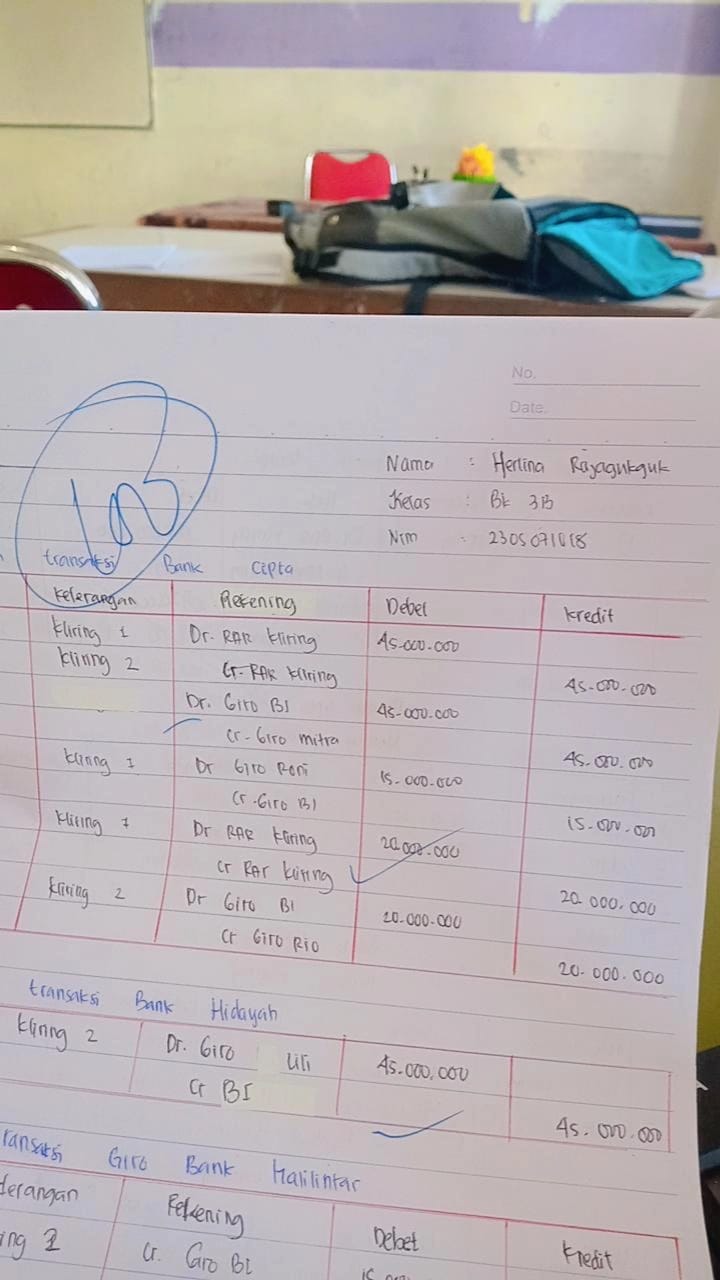 No.
Date.
100
Nama : Herlina Rajagukguk
Kelas : BK 3B
Nim : 2305071018
transaksi Bank Cipta
Keterangan Rekening Debet Kredit
Kliring 1 Dr. RAR Kliring 45.000.000
Kliring 2 Cr. RAR Kliring 45.000.000
Dr. Giro BI 45.000.000
Cr. Giro mitra 45.000.000
Kliring 1 Dr Giro Roni 15.000.000
Cr. Giro BI 15.000.000
Kliring 1 Dr RAR Kliring 20.000.000
Cr RAR Kliring 20.000.000
Kliring 2 Dr Giro BI 20.000.000
Cr Giro Rio 20.000.000
transaksi Bank Hidayah
Kliring 2 Dr. Giro Lili 45.000.000
Cr BI 45.000.000
transaksi Giro Bank Halilintar
Keterangan Rekening Debet Kredit
Cr. Giro BI